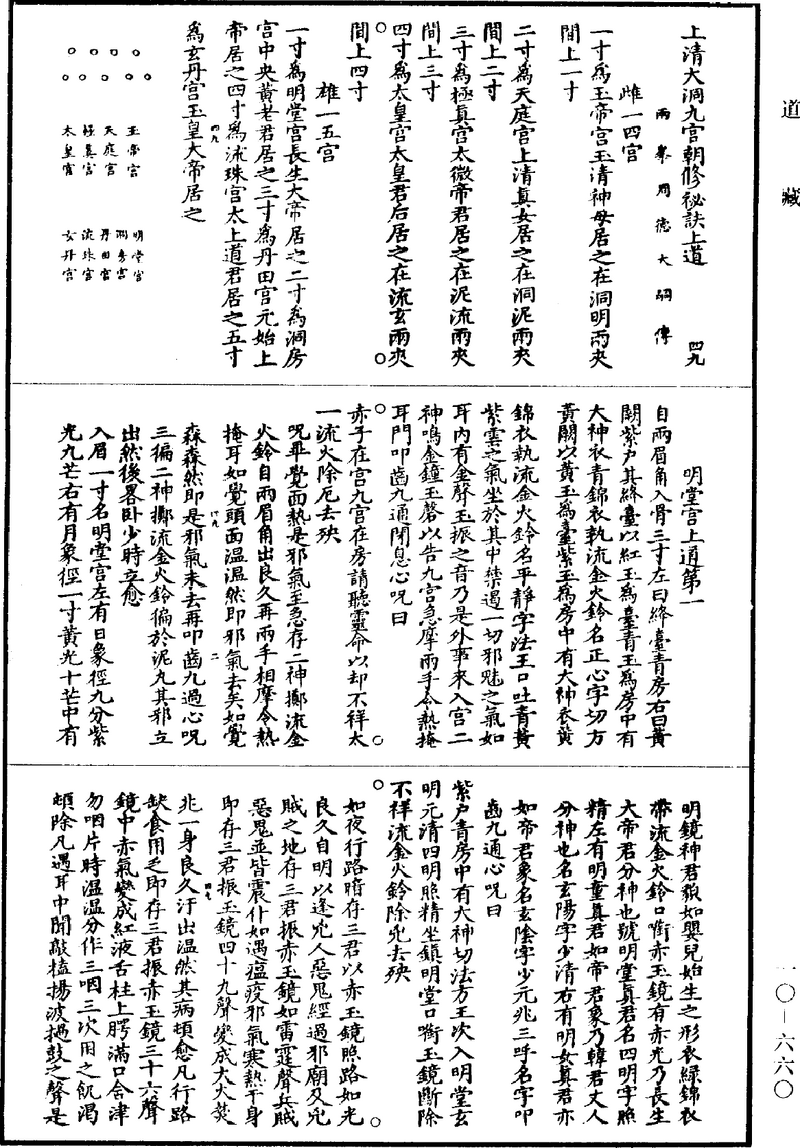 道藏
上清大洞九宮朝修祕訣上道 四九
雨峯周德大嗣傳
雌一四宮
一寸爲玉帝宮玉清神母居之在洞明兩夾
間上一寸
二寸爲天庭宮上清真女居之在洞泥兩夾
間上二寸
三寸爲極真宮太微帝君居之在泥流兩夾
間上三寸
四寸爲太皇宮太皇君后居之在流玄兩夾
間上四寸
雄一五宮
一寸爲明堂宮長生大帝居之二寸爲洞房
宮中央黄老君居之三寸爲丹田宮元始上
帝居之四寸爲流珠宮太上道君居之五寸
四九
爲玄丹宮玉皇大帝居之
玉帝宮 明堂宮
洞房宮
天庭宮 丹田宮
極真宮 流珠宮
太皇宮 玄丹宮
明堂宮上通第一
自兩眉角入骨三寸左曰絳臺青房右曰黄
闕紫户其絳臺以紅玉爲臺青玉爲房中有
大神衣青錦衣執流金火鈴名正心字切方
黄闕以黄玉爲臺紫玉爲房中有大神衣黄
錦衣執流金火鈴名平靜字法王口吐青黄
紫雲之氣坐於其中禁遏一切邪魅之氣如
耳内有金聲玉振之音乃是外事來入宮二
神鳴金鐘玉磬以告九宮急摩兩手令熱掩
耳門叩齒九通閉息心呪曰
赤子在宮九宮在房請聽靈命以却不祥太
一流火除厄去殃
呪畢覺面熱是邪氣至急存二神擲流金
火鈴自兩眉角出良久再兩手相摩令熱
掩耳如覺頭面温温然即邪氣去矣如覺
二
森森然即是邪氣未去再叩齒九過心呪
三徧二神擲流金火鈴徧於泥丸其邪立
出然後畧卧少時立愈
入眉一寸名明堂宮左有日象徑九分紫
光九芒右有月象徑一寸黄光十芒中有
明鏡神君貌如嬰兒始生之形衣緑錦衣
帶流金火鈴口銜赤玉鏡有赤光乃長生
大帝君分神也號明堂真君名四明字照
精左有明童真君如帝君象乃韓君丈人
分神也名玄陽字少清右有明女真君亦
如帝君象名玄陰字少元兆三呼名字叩
齒九通心呪曰
紫户青房中有大神切法方王次入明堂玄
明元清四明照精坐鎮明堂口銜玉鏡斷除
不祥流金火鈴除兇去殃
如夜行路暗存三君以赤玉鏡照路如光
良久自明以逢兇人惡鬼經過邪廟及兇
賊之地存三君振赤玉鏡如雷霆聲兵賊
惡鬼並皆震仆如遇瘟疫邪氣寒熱干身
即存三君振玉鏡四十九聲變成大火焚
兆一身良久汗出温然其病頓愈凡行路
缺食用乏即存三君振赤玉鏡三十六聲
鏡中赤氣變成紅液舌柱上腭滿口含津
勿咽片時温温分作三咽三次用之飢渴
頓除凡遇耳中聞敲榼揚波撾鼓之聲是
一〇－六六〇